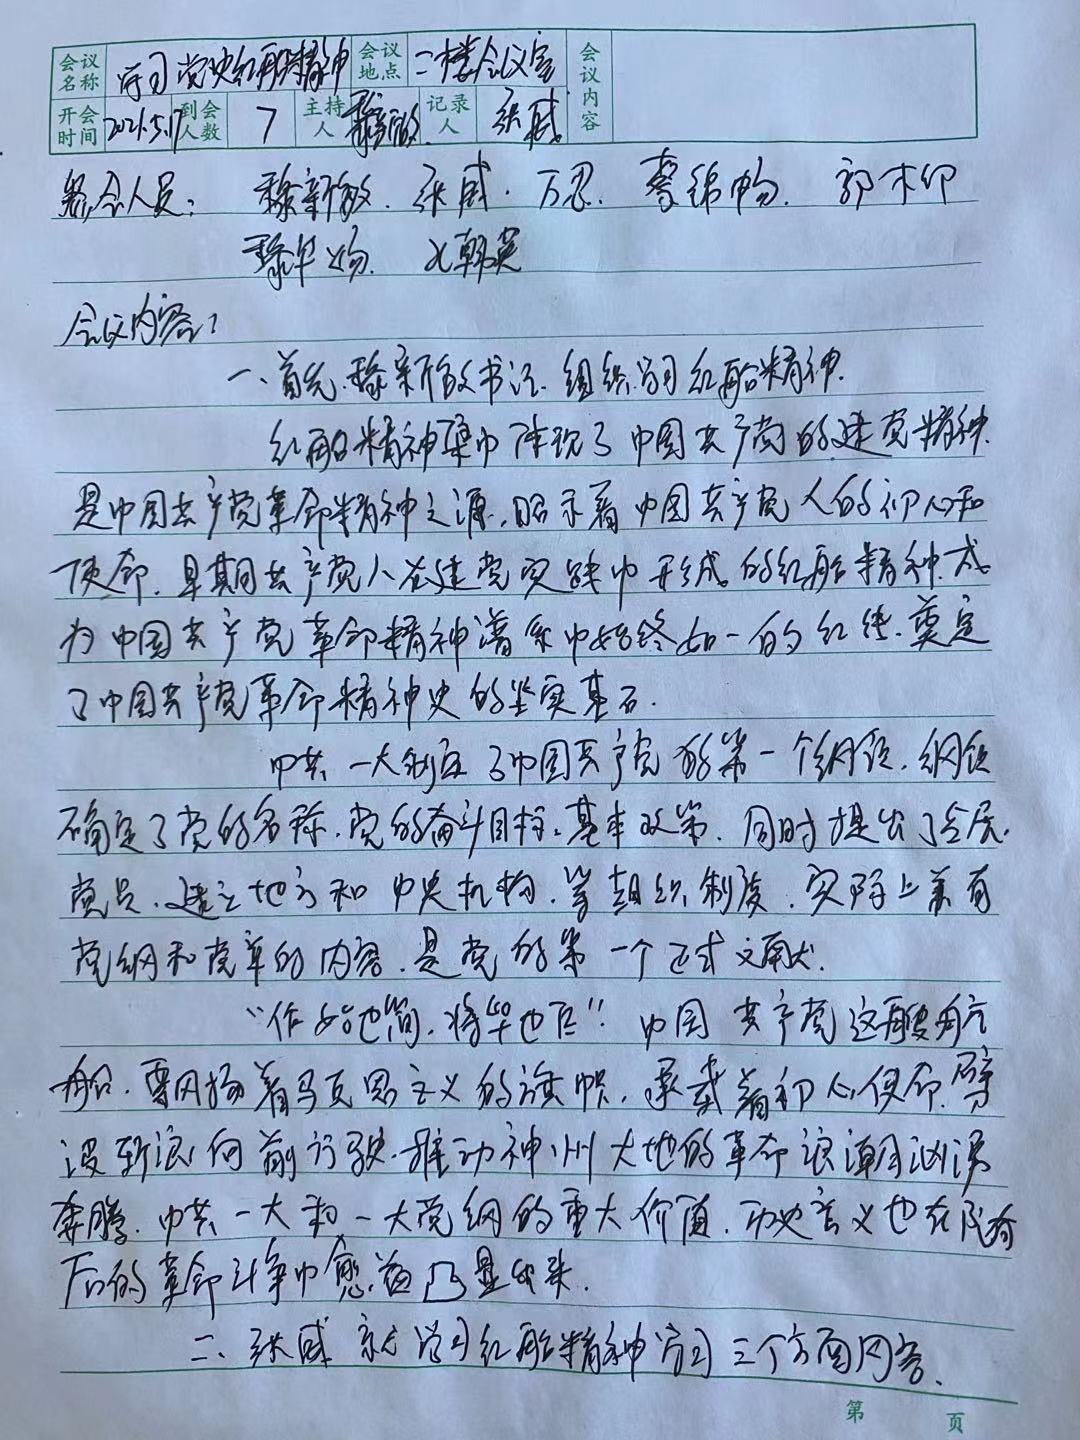 会议名称 学习党史红船精神 会议地点 二楼会议室 会议内容
开会时间 2021.5.17 到会人数 7 主持人 穆新敏 记录人 张威
参会人员： 穆新敏. 张威. 万忍. 郭木仰
穆华
会议内容：
一、首先.穆新敏书记.组织学习红船精神.
红船精神集中体现了中国共产党的建党精神.
是中国共产党革命精神之源.昭示着中国共产党人的初心和
使命.早期共产党人在建党实践中形成的红船精神.成
为中国共产党革命精神谱系中始终如一的红线.奠定
了中国共产党革命精神史的坚实基石.
中共一大制定了中国共产党的第一个纲领.纲领
确定了党的名称.党的奋斗目标.基本政策.同时提出了发展
党员.建立地方和中央机构.等组织制度.实际上兼有
党纲和党章的内容.是党的第一个正式文献.
“作始也简.将毕也巨”.中国共产党这艘航
船.飘扬着马克思主义的旗帜.承载着初心使命.劈
波斩浪向前行驶.推动神州大地的革命浪潮汹涌
奔腾.中共一大和一大党纲的重大价值.历史意义也在
后的革命斗争中愈益凸显出来.
二、张威就学习红船精神学习三个方面内容.
第 页